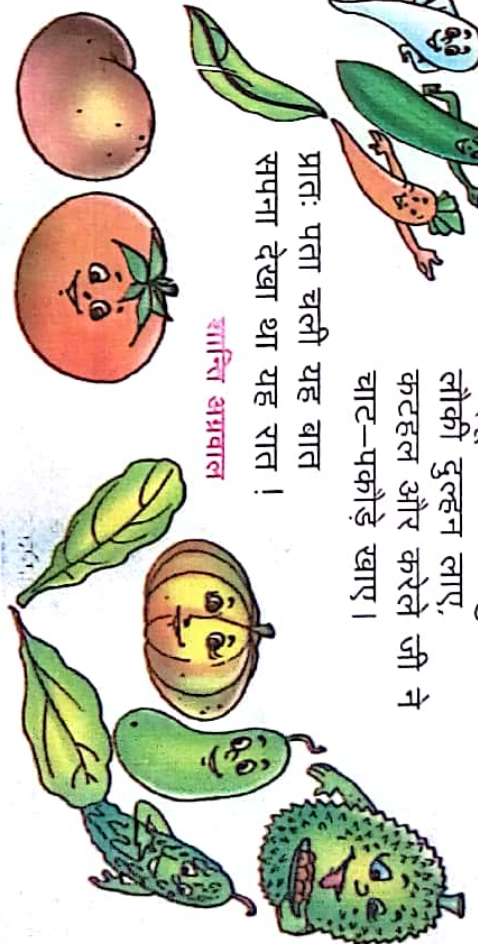 लौकी दुल्हन लाए,
कटहल और करेले जी ने
चाट-पकौड़े खाए।
प्रातः पता चली यह बात
सपना देखा था यह रात !
शान्ति अग्रवाल